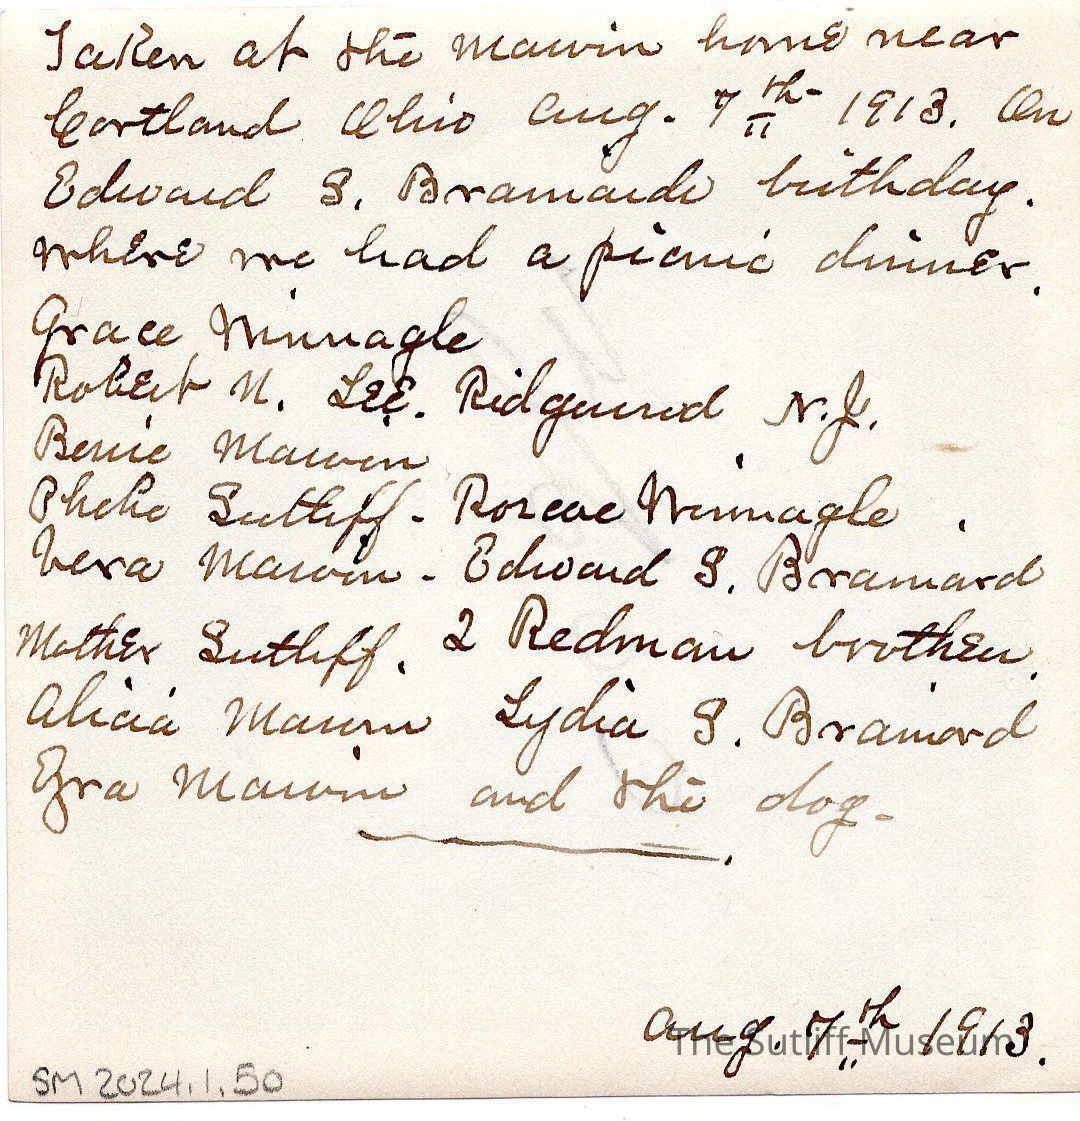 Taken at the Marvin home near
Cortland Ohio Aug. 7th 1913. On
Edward S. Brainards birthday.
where we had a picnic dinner.
Grace Winnagle
Robert N. Lee. Ridgewood N.J.
Bessie Marvin
Phebe Sutliff - Roscoe Winnagle.
Vera Marvin - Edward S. Brainard
Mother Sutliff. 2 Redman brothers.
Alicia Marvin Lydia S. Brainard
Ezra Marvin and the dog.
Aug. 7th 1913.
The Sutliff Museum
SM 2024.1.50